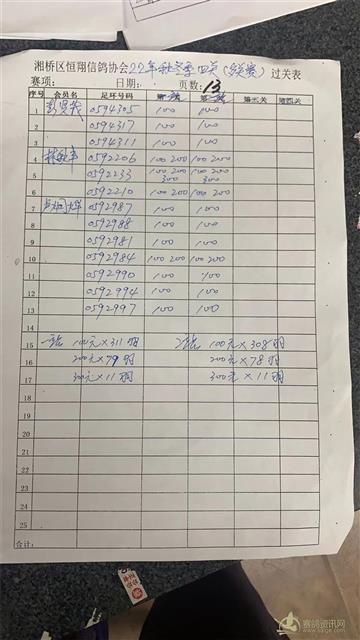 湘桥区恒翔信鸽协会22年秋季四关(续赛)过关表
赛项: 日期: 页数: 13
序号 会员名 足环号码 第一关 第二关 第三关 第四关
1 0594305 100 100
2 0594317 100 100
3 0594311 100 100
4 0592206 100 200 100 200
5 0592233 100 200 300 100 200 300
6 0592210 100 200 100 200
7 0592987 100 100
8 0592988 100 100
9 0592981 100 100
10 0592984 100 200 100 200
11 0592990 100 100
12 0592994 100 100
13 0592997 100 100
14
15 一关 100元×311羽 2关 100元×308羽
16 200元×79羽 200元×78羽
17 300元×11羽 300元×11羽
18
19
20
21
22
23
24
25
合计:
赛鸽资讯网
www.saige.com